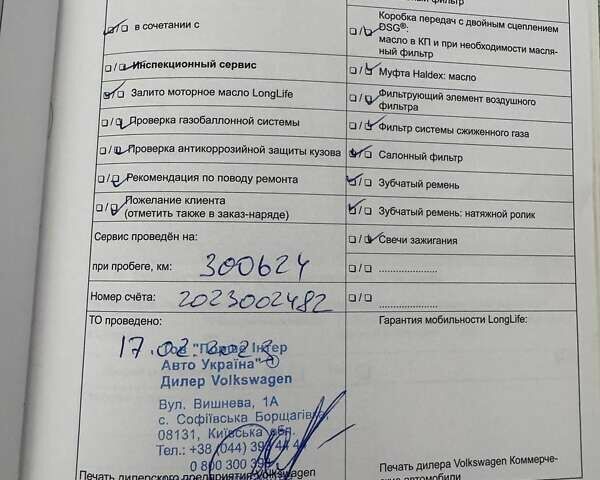 фильтр
☐/☐ в сочетании с
☐/☐ Инспекционный сервис
☐/☐ Залито моторное масло LongLife
☐/☐ Проверка газобаллонной системы
☐/☐ Проверка антикоррозийной защиты кузова
☐/☐ Рекомендация по поводу ремонта
☐/☐ Пожелание клиента
(отметить также в заказ-наряде)
Сервис проведён на:
при пробеге, км: 300624
Номер счёта: 2023002482
ТО проведено:
17.02.2023
Тов "Порше Інтер
Авто Україна" 1
Дилер Volkswagen
Вул. Вишнева, 1А
с. Софіївська Борщагівка,
08131, Київська обл.
Тел.: +38 (044) 39
0 800 300 39
Печать дилерского предприятия Volkswagen
Коробка передач с двойным сцеплением
☐/☐ DSG®:
масло в КП и при необходимости масля-
ный фильтр
☐/☐ Муфта Haldex: масло
☐/☐ Фильтрующий элемент воздушного
фильтра
☐/☐ Фильтр системы сжиженного газа
☐/☐ Салонный фильтр
☐/☐ Зубчатый ремень
☐/☐ Зубчатый ремень: натяжной ролик
☐/☐ Свечи зажигания
☐/☐ ....................
☐/☐ ....................
Гарантия мобильности LongLife:
Печать дилера Volkswagen Коммерче-
ские автомобили